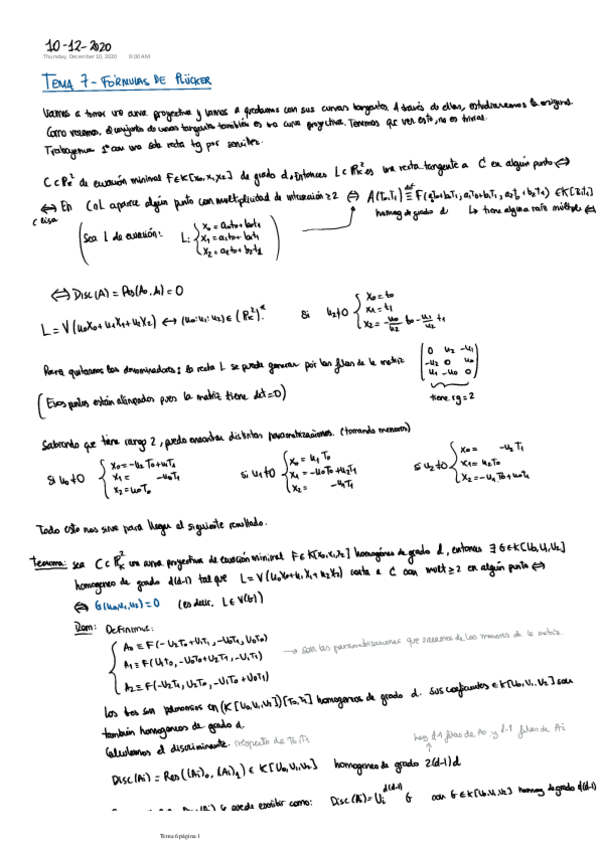 10-12-2020
Thursday, December 10, 2020 9:00 AM
TEMA 7 - FÓRMULAS DE PLÜCKER
Vamos a tomar una curva proyectiva y vamos a quedarnos con sus curvas tangentes. A través de ellas, estudiaremos la original.
Como veremos, el conjunto de tangentes también es una curva proyectiva. Tenemos que ver esto, no es trivial.
Trabajemos 1º con una sola recta tg por sencillez.
C⊂P²_K de ecuación minimal F∈K[x₀,x₁,x₂] de grado d, Entonces L⊂P²_K es una recta tangente a C en algún punto ⇔
⇔ En C∩L aparece algún punto con multiplicidad de intersección ≥2 ⇔ A(T₀,T₁) ≝ F(a₀T₀+b₀T₁, a₁T₀+b₁T₁, a₂T₀+b₂T₁) ∈ K[T₀,T₁]
C lisa
homog de grado d tiene alguna raíz múltiple ⇔
(Sea L de ecuación: L: { x₀ = a₀t₀+b₀t₁
x₁ = a₁t₀+b₁t₁
x₂ = a₂t₀+b₂t₁ )
⇔ Disc(A) = Res(A₀,A₁) = 0
L = V(u₀X₀+u₁X₁+u₂X₂) ↔ (u₀:u₁:u₂)∈(P²_K)*. Si u₂≠0 { x₀=t₀
x₁=t₁
x₂ = -u₀/u₂ t₀ - u₁/u₂ t₁
Para quitarnos los denominadores: la recta L se puede generar por las filas de la matriz
( 0 u₂ -u₁
-u₂ 0 u₀
u₁ -u₀ 0 )
tiene rg=2
(Esos puntos están alineados pues la matriz tiene det=0)
Sabiendo que tiene rango 2, puedo encontrar distintas parametrizaciones. (tomando menores)
si u₀≠0 { x₀ = -u₂T₀+u₁T₁
x₁ = -u₀T₁
x₂ = u₀T₀
si u₁≠0 { x₀ = u₁T₀
x₁ = -u₀T₀+u₂T₁
x₂ = -u₁T₁
si u₂≠0 { x₀ = -u₂T₁
x₁ = u₂T₀
x₂ = -u₁T₀+u₀T₁
Todo esto nos sirve para llegar al siguiente resultado.
Teorema: sea C⊂P²_K una curva proyectiva de ecuación minimal F∈K[x₀,x₁,x₂] homogéneo de grado d, entonces ∃ G∈K[U₀,U₁,U₂]
homogéneo de grado d(d-1) tal que L=V(u₀X₀+u₁X₁+u₂X₂) corta a C con mult ≥2 en algún punto ⇔
⇔ G(u₀,u₁,u₂)=0 (es decir, L∈V(G))
Dem: Definimos:
{ A₀ ≡ F(-U₂T₀+U₁T₁, -U₀T₁, U₀T₀)
A₁ ≡ F(U₁T₀, -U₀T₀+U₂T₁, -U₁T₁)
A₂ ≡ F(-U₂T₁, U₂T₀, -U₁T₀+U₀T₁)
→ son las parametrizaciones que sacamos de los menores de la matriz
los tres son polinomios en (K[U₀,U₁,U₂])[T₀,T₁] homogéneos de grado d. sus coeficientes ∈K[U₀,U₁,U₂] son
también homogéneos de grado d.
Calculamos el discriminante. respecto de T₀,T₁
hay d-1 filas de A₀ y d-1 filas de A₁
Disc(Ai) = Res((Ai)₀, (Ai)₁) ∈ K[U₀,U₁,U₂] homogéneo de grado 2(d-1)d
se puede escribir como: Disc(Ai)=Ui^d(d-1) G con G∈K[U₀,U₁,U₂] homog de grado d(d-1)
Tema 6 página 1